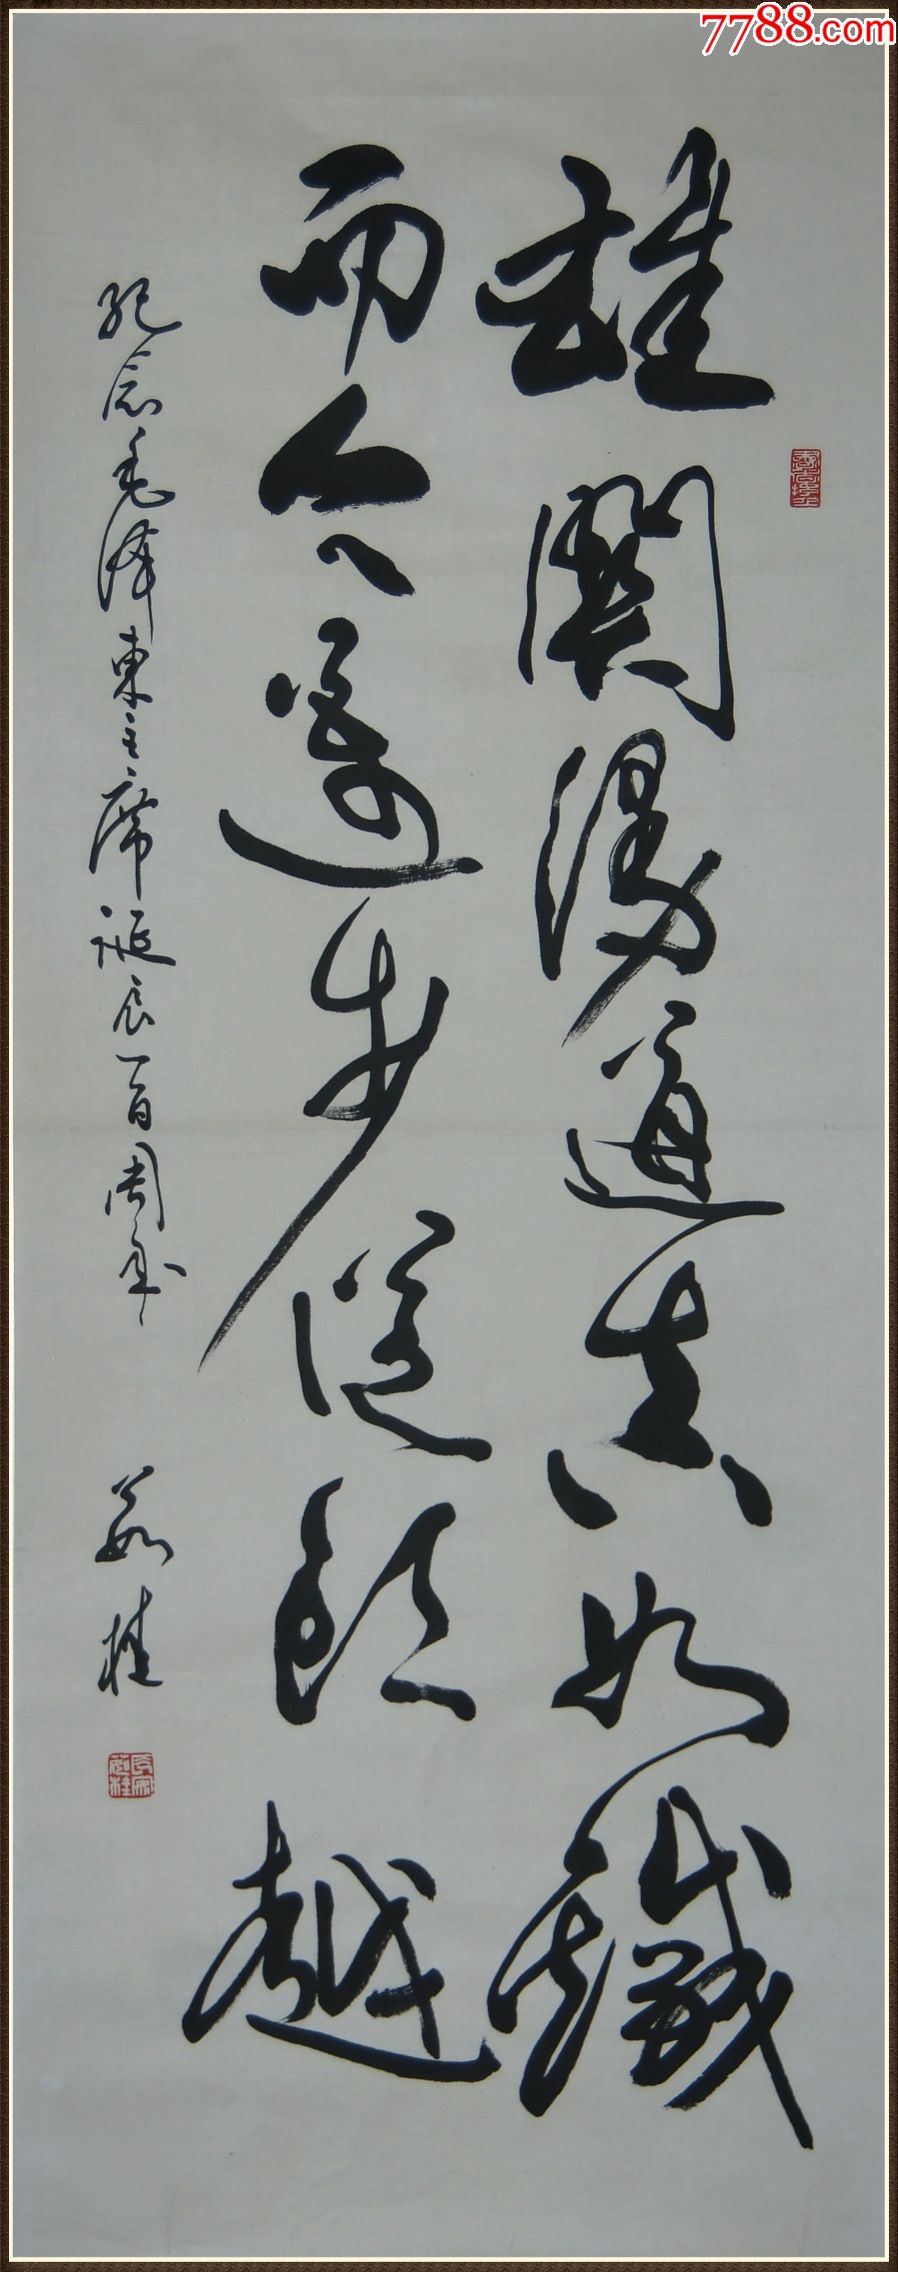 7788.com
雄關漫道真如鐵
而今邁步從頭越
紀念毛澤東主席誕辰一百周年
茹桂